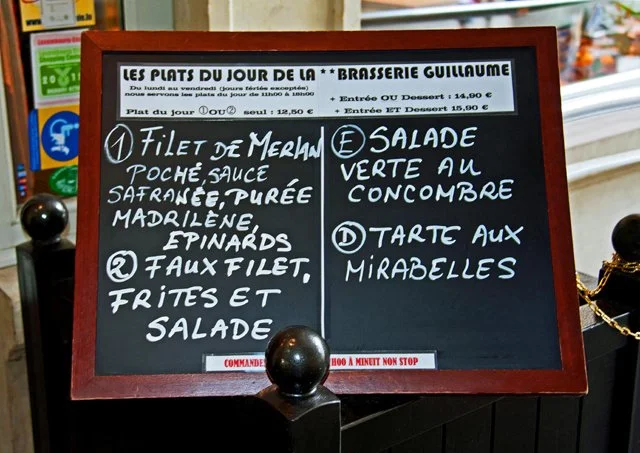 LES PLATS DU JOUR DE LA **BRASSERIE GUILLAUME
Du lundi au vendredi (jours fériés exceptés)
nous servons les plats du jour de 11h00 à 18h00
Plat du jour ①OU② seul : 12,50 €
+ Entrée OU Dessert : 14,90 €
+ Entrée ET Dessert 15,90 €
① FILET DE MERLAN
POCHÉ, SAUCE
SAFRANÉE, PURÉE
MADRILÈNE,
EPINARDS
② FAUX FILET,
FRITES ET
SALADE
Ⓔ SALADE
VERTE AU
CONCOMBRE
Ⓓ TARTE AUX
MIRABELLES
COMMANDES
H00 À MINUIT NON STOP